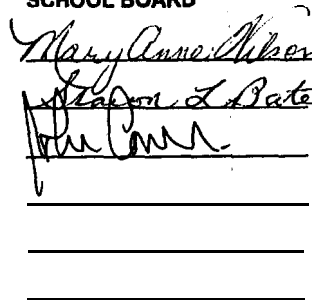 SCHOOL BOARD
Mary Anne Wilson
Sharon L Bate
John